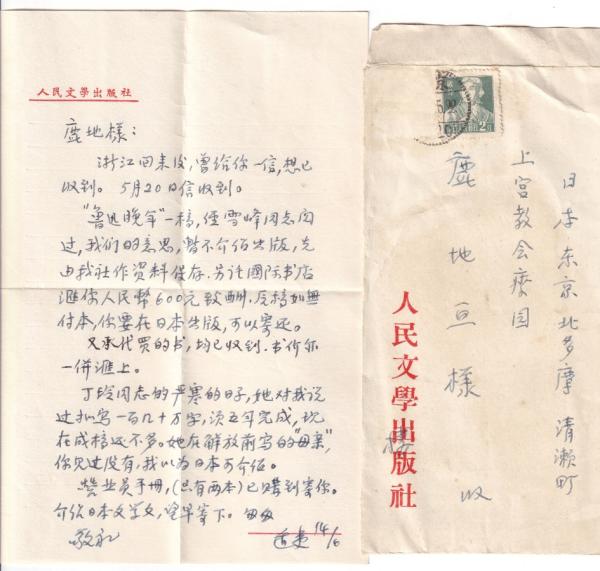 人民文學出版社
鹿地樣：
浙江回来後，曾给你一信，想已
收到。5月20日信收到。
"魯迅晚年"一稿，经雪峰同志阅
过，我们的意思，暂不介绍出版，先
由我社作资料保存。另託國际书店
滙你人民幣600元致酬。原稿如無
付本，你要在日本出版，可以寄还。
又承代買的书，均已收到。书价亦
一併滙上。
丁玲同志的严寒的日子，她对我说
过拟写一百几十万字，须五年完成，现
在成稿还不多。她在解放前写的"母亲"，
你见过没有，我以为日本可介绍。
营业员手册，(只有两本)已購到寄你。
介绍日本文学文，望早寄下。匆匆
敬礼
适夷 14/6
日本东京北多摩清瀬町
上宫教会療园
鹿地亘樣 收
人民文學出版社
樓